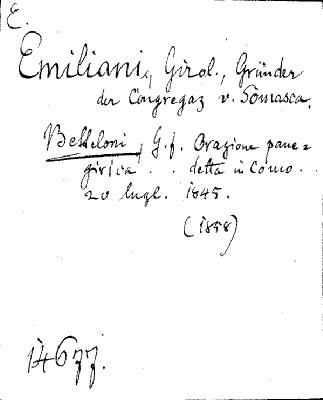 E.
Emiliani, Girol., Gründer
der Congregaz v. Somasca.
Belleloni, G. f. Orazione pane=
girica . . detta in Como.
20 lugl. 1845.
(1858)
14677.